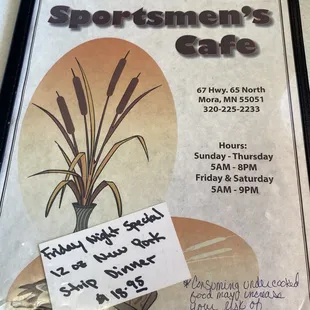 Sportsmen's
Cafe
67 Hwy. 65 North
Mora, MN 55051
320-225-2233
Hours:
Sunday - Thursday
5AM - 8PM
Friday & Saturday
5AM - 9PM
Friday Night Special
12 oz New York
Strip Dinner
$18.95
*Consuming undercooked
food may increase
your risk of